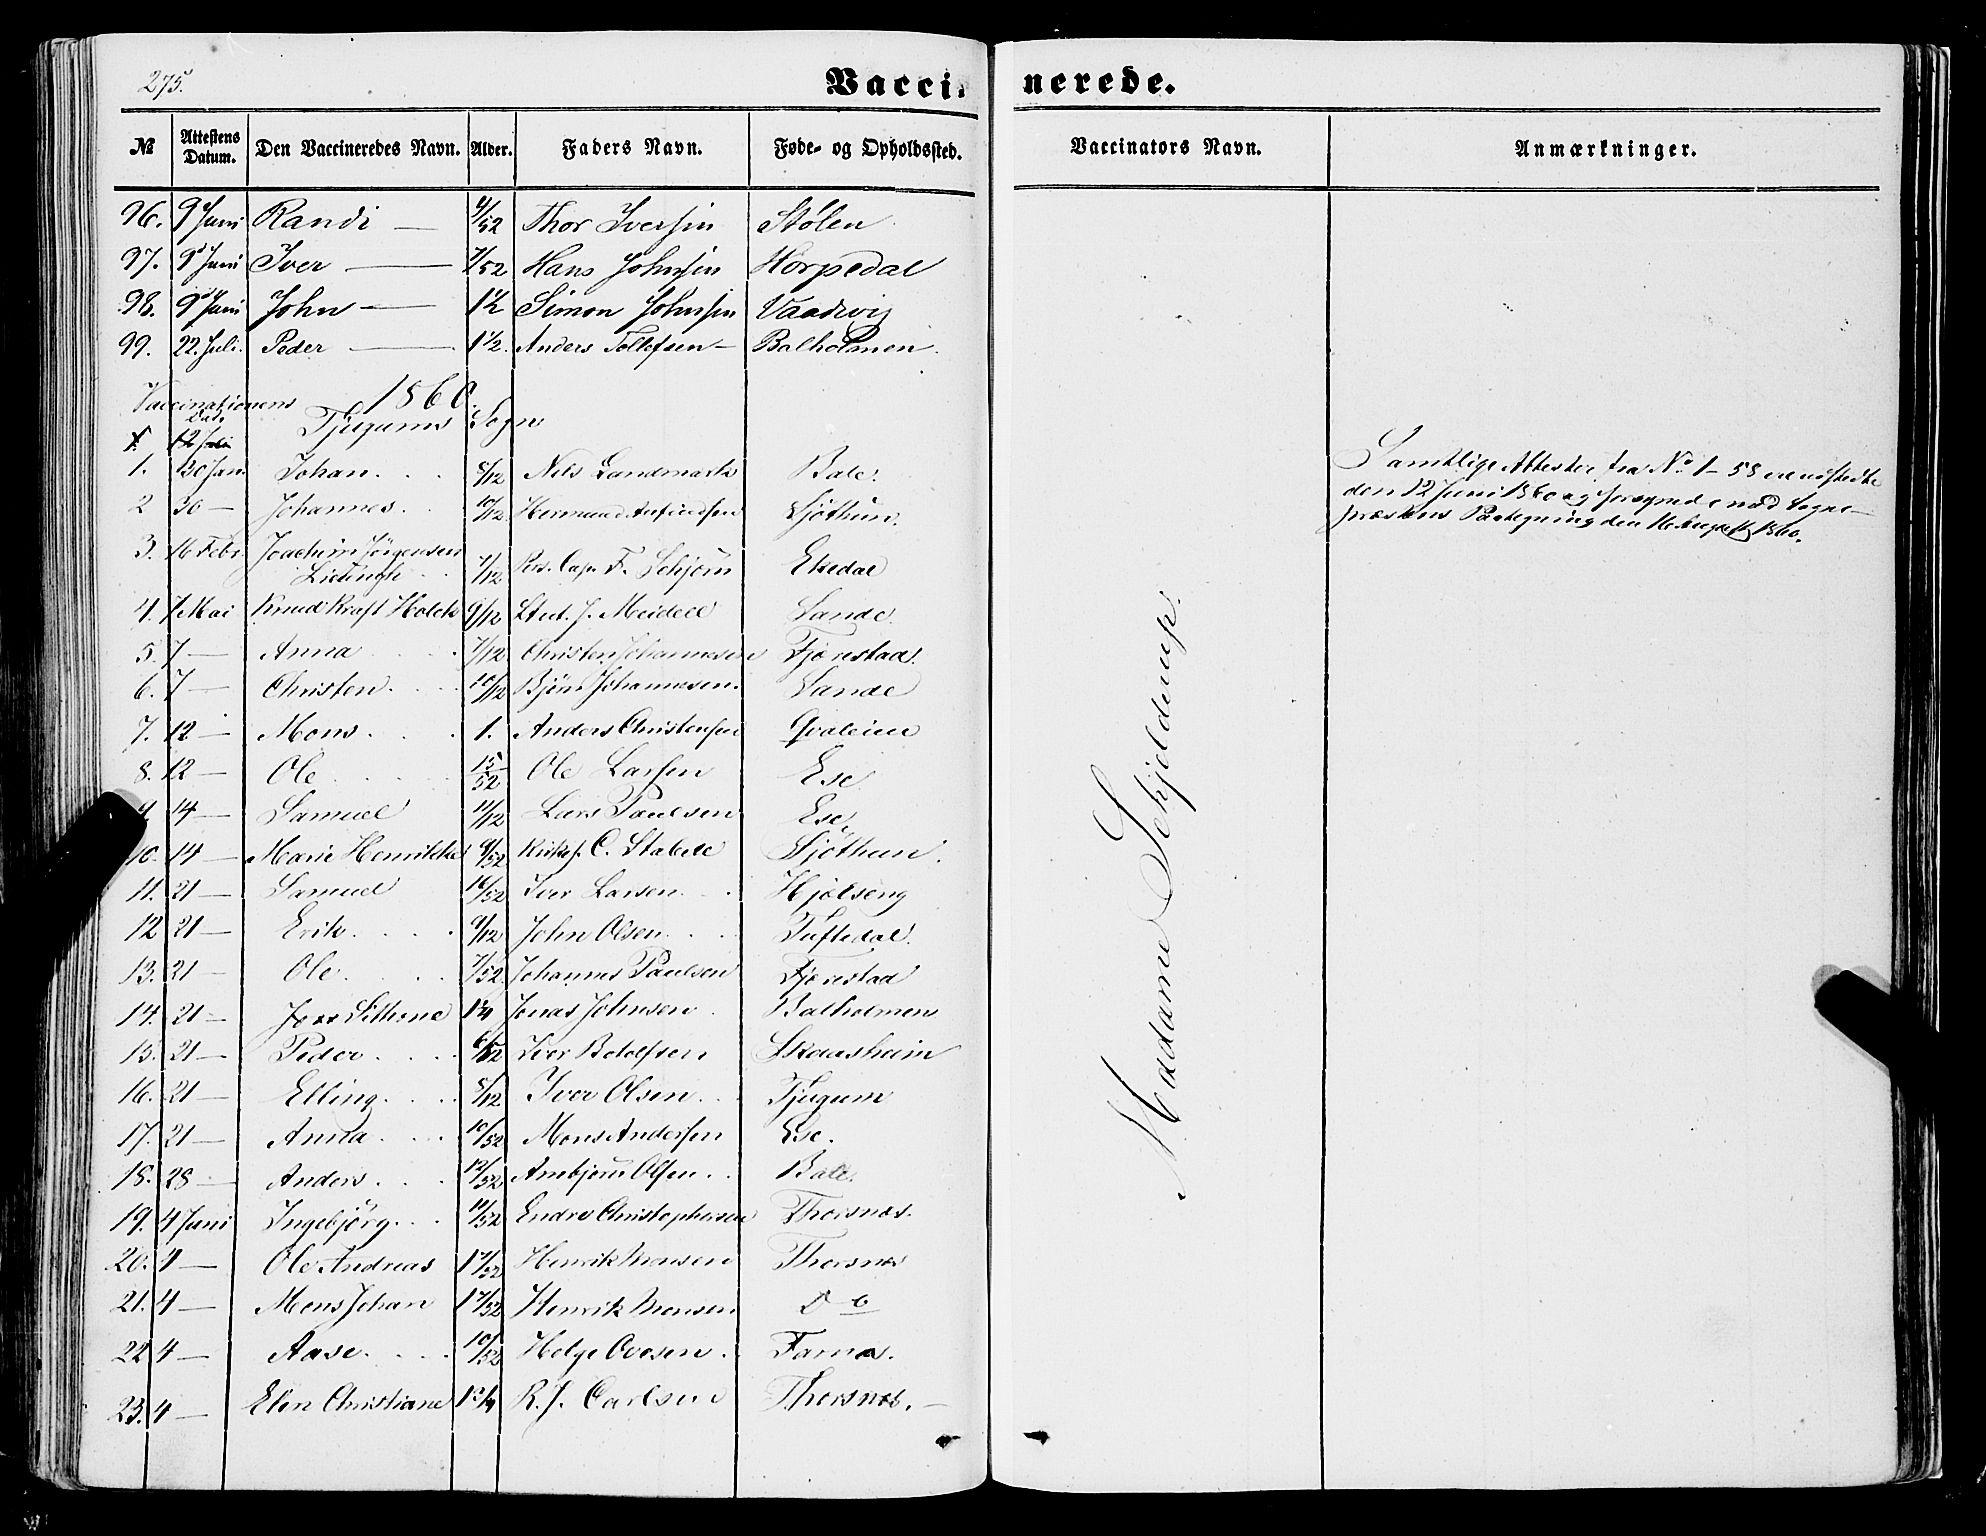 275.
Vaccinerede.
№ Attestens Datum. Den Vaccineredes Navn. Alder. Faders Navn. Føde- og Opholdssted. Vaccinators Navn. Anmærkninger.
96. 9 Juni Randi — 9/52 Thor Iversen Stølen
97. 9 Juni Iver — 7/52 Hans Johnsen Horpedal
98. 9 Juni John — 1½ Simon Johnsen Vaadvig
99. 22. Juli. Peder — 1½. Anders Tollefsen — Balholmen.
Vaccinationens Dato 1860.
Tjugums Sogn
1. 30 Jan. Johan. 8/12 Nils Landmark Bale.
2 30 — Johannes. 10/12 Hermund Anfindsen Sjøthun.
3. 16 Febr. Joachim Jörgensen 7/12 Cap. F. Schjörn Esedal
4. 7 Mai Knud Kraft Holck 9/12 J. Meidell Sande.
5. 7 — Anna 7/12 Christen Johannesen Fjørestad.
6. 7 — Christen. 10/12 Bjørn Johannesen. Sande
7. 12 — Mons. 1. Anders Christensen Qvaleim
8. 12 — Ole 15/52 Ole Larsen Ese
9. 14 — Samuel 11/12 Lars Paulsen Ese
10. 14 — Marie Henrikke 9/52 C. Stabell Sjøthun.
11. 21 — Samuel 16/52 Iver Larsen. Hjølseng
12 21 — Erik. 9/12 John Olsen. Tuftedal.
13. 21 — Ole. 7/52. Johannes Paulsen Fjørestad
14. 21 — Sithene 1¼ Jonas Johnsen Balholmen
15. 21 — Peder. Iver Botolfsen Skaasheim
16. 21 — Elling. 8/12 Iver Olsen. Tjugum
17. 21 — Anna. 10/52 Mons Andersen Ese.
18. 28 — Anders. 12/52 Arnbjørn Olsen. Bale.
19. 4 Juni Ingebjörg. 10/52 Endre Christophersen Thorsnæs.
20. 4 — Ole Andreas 17/52 Henrik Monsen Thorsnæs
21. 4 — Mons Johan 17/52 Henrik Monsen Do
22 4 — Aase. 10/52 Helge Ovesen. Farnæs.
23. 4 — Elen Christiane 1¾ R. J. Carlsen Thorsnæs. —
Madame Schjelderup.
Samtlige Attester fra No 1–58 ere udstedte
den 12 Juni 1860 og forsynede med Sogne-
præstens Paategning den 16 August 1860.